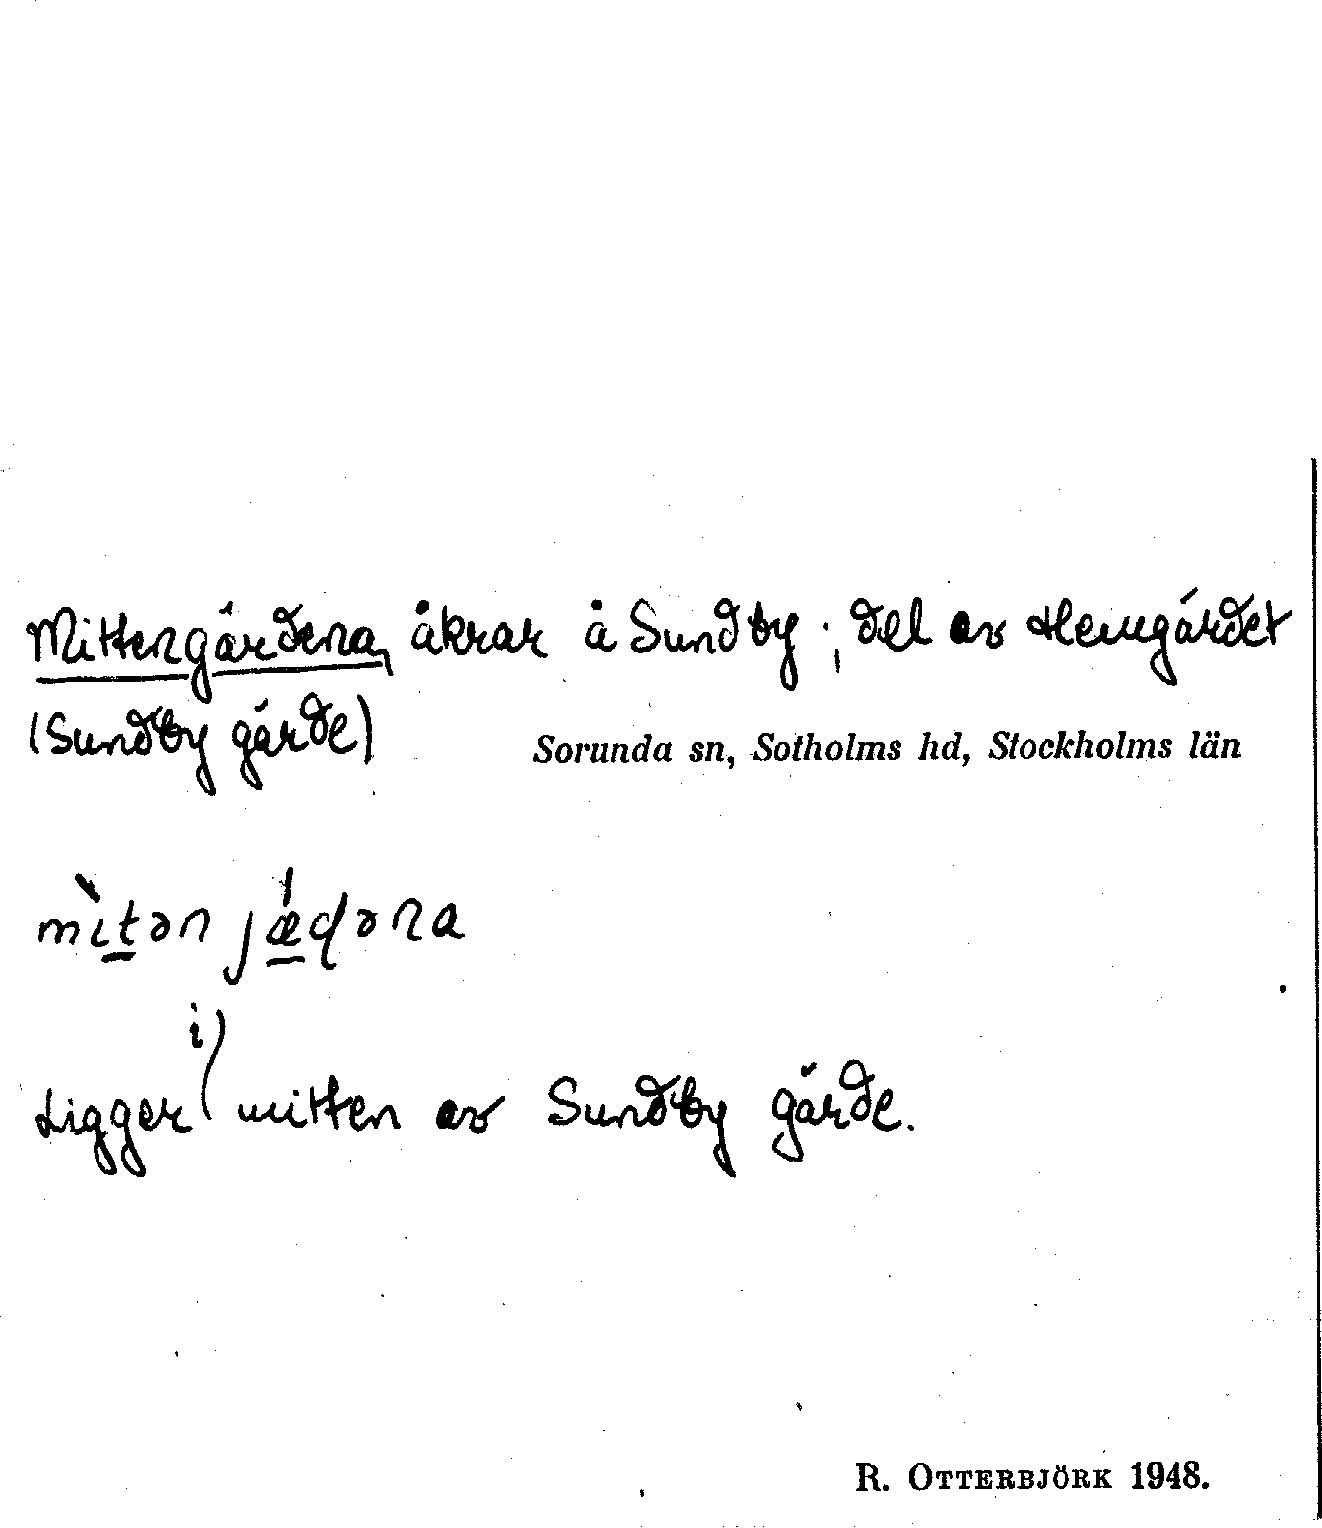 Mittengärdena, åkrar å Sundby; del av Hemgärdet
(Sundby gärde)
Sorunda sn, Sotholms hd, Stockholms län
mìtən jǽɖəna
Ligger i mitten av Sundby gärde.
R. OTTERBJÖRK 1948.